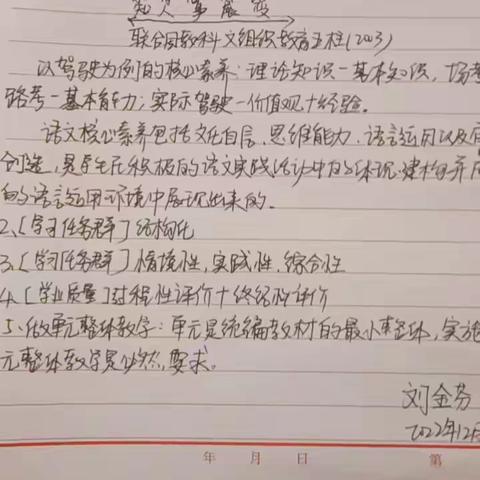 联合国教科文组织教育五柱(2003)
以驾驶为例的核心素养:理论知识—基本知识,场考
路考—基本能力;实际驾驶—价值观+经验。
语文核心素养包括文化自信、思维能力、语言运用以及
创造,是学生在积极的语文实践活动中的体现、建构并
的语言运用环境中展现出来的。
2、[学习任务群]结构化
3、[学习任务群]情境性,实践性,综合性
4、[学业质量]过程性评价+终结性评价
5、做单元整体教学:单元是统编教材的最小整体,实施
元整体教学是必然,要求。
刘金芬
2022年12月
年 月 日 第